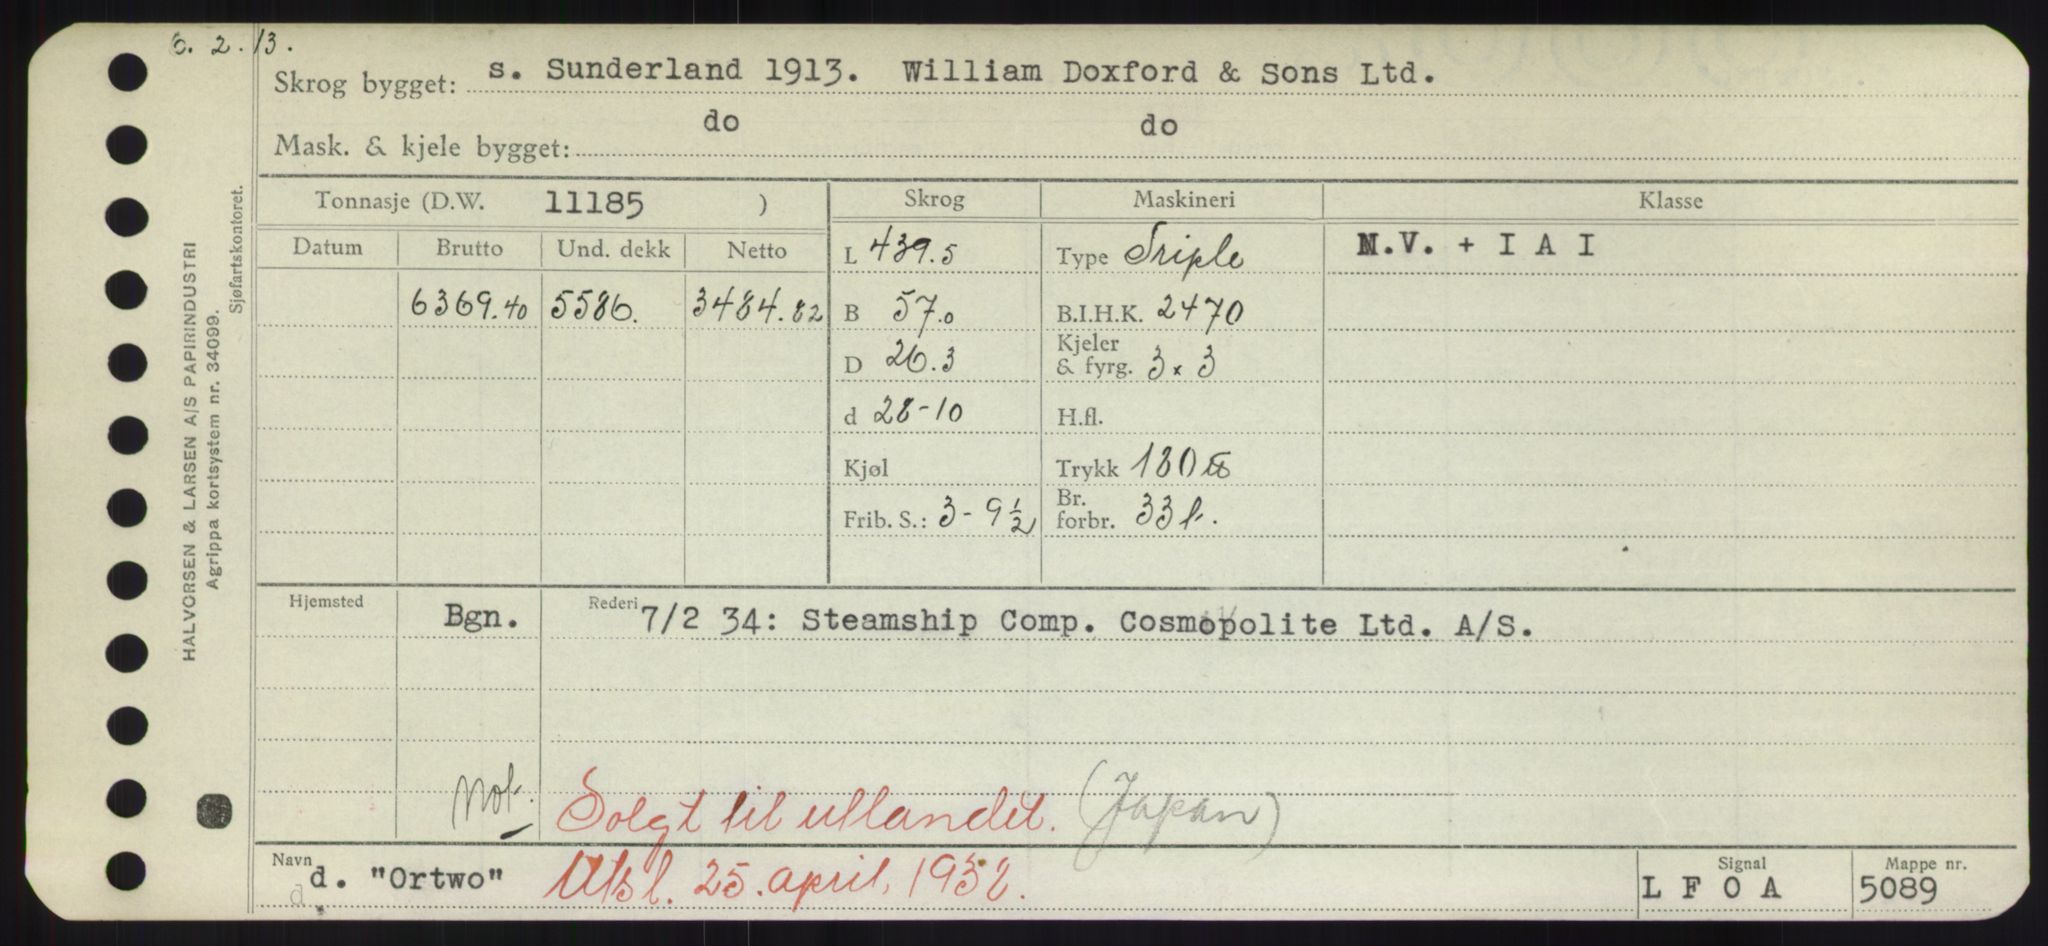 6. 2. 13.
Skrog bygget: s. Sunderland 1913. William Doxford & Sons Ltd.
Mask. & kjele bygget: do do
Tonnasje (D.W. 11185 ) Skrog Maskineri Klasse
Datum Brutto Und. dekk Netto L 439.5 Type Triple N.V. + I A I
6369.40 5586. 3484.82 B 57.0 B.I.H.K. 2470
D 26.3 Kjeler & fyrg. 3 x 3
d 28-10 H.fl.
Kjøl Trykk 180 lb
Frib. S.: 3 - 9 1/2 Br. forbr. 33 t.
Hjemsted Bgn. Rederi 7/2 34: Steamship Comp. Cosmopolite Ltd. A/S.
Not. Solgt til utlandet. (Japan)
Navn d. "Ortwo" Utsl. 25. april, 1938. Signal L F O A Mappe nr. 5089
HALVORSEN & LARSEN A/S PAPIRINDUSTRI
Agrippa kortsystem nr. 34099.
Sjøfartskontoret.